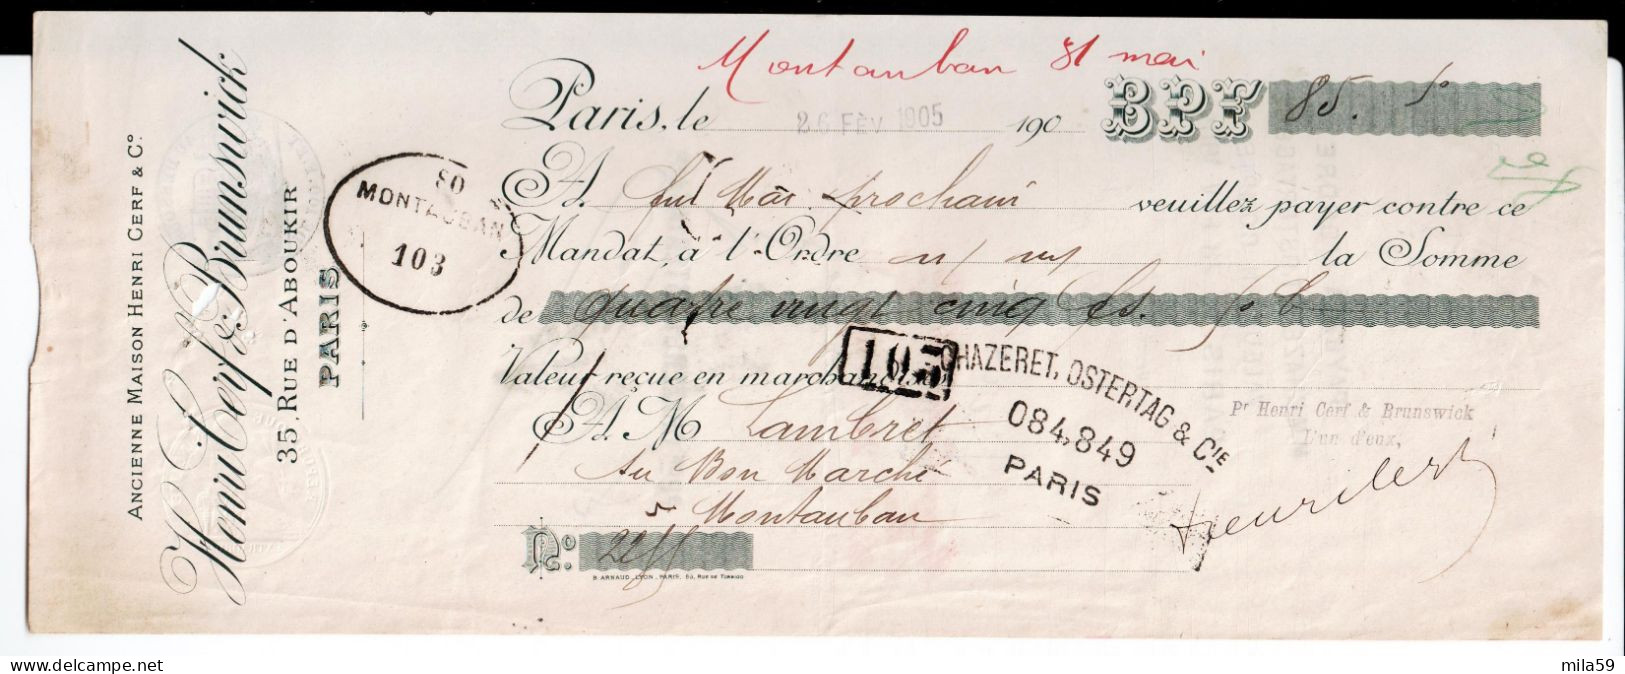 ANCIENNE MAISON HENRI CERF & Cº
Henri Cerf & Brunswick
35, RUE D'ABOUKIR
PARIS
Montauban 31 mai
Paris, le 26 FÉV 1905 190 BPF 85.
A fin Mai prochain veuillez payer contre ce
Mandat, à l'Ordre la Somme
de quatre vingt cinq
Valeur reçue en marchandises
A M Lambret
Au Bon Marché
Montauban
Nº
B. ARNAUD, LYON-PARIS
80
MONTAUBAN
103
105
CHAZERET, OSTERTAG & CIE
084,849
PARIS
Pr Henri Cerf & Brunswick
L'un d'eux,
delcampe.net
mila59